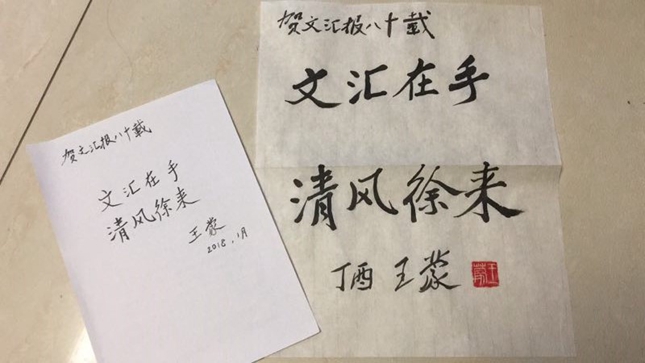 贺文汇报八十载
文汇在手
清风徐来
王蒙
2018.1月
贺文汇报八十载
文汇在手
清风徐来
丁酉 王蒙
王蒙